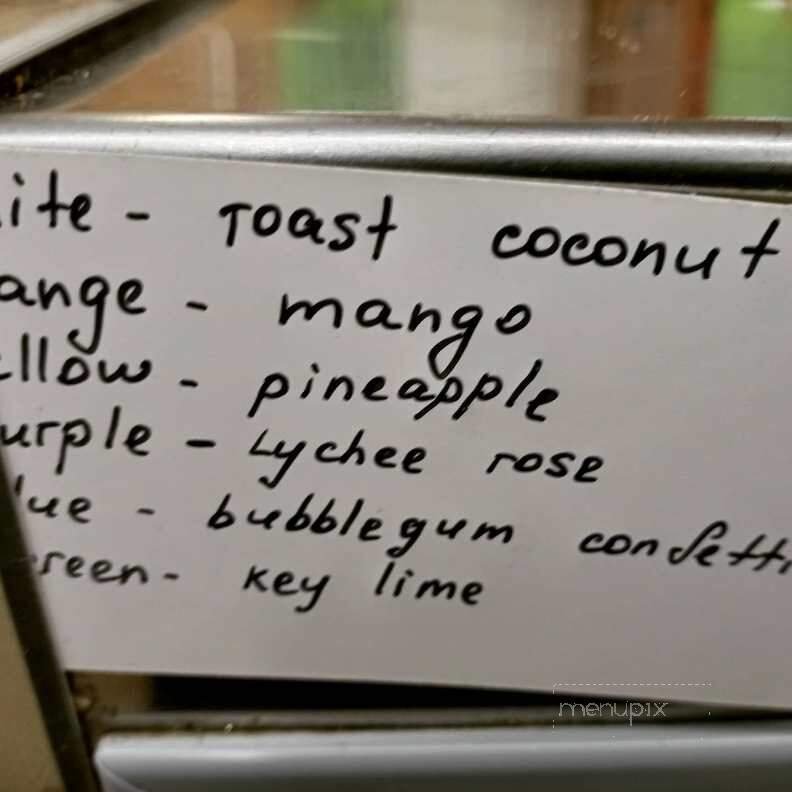 ite - Toast coconut
ange - mango
ellow - pineapple
urple - Lychee rose
lue - bubblegum confetti
reen - key lime
menupix